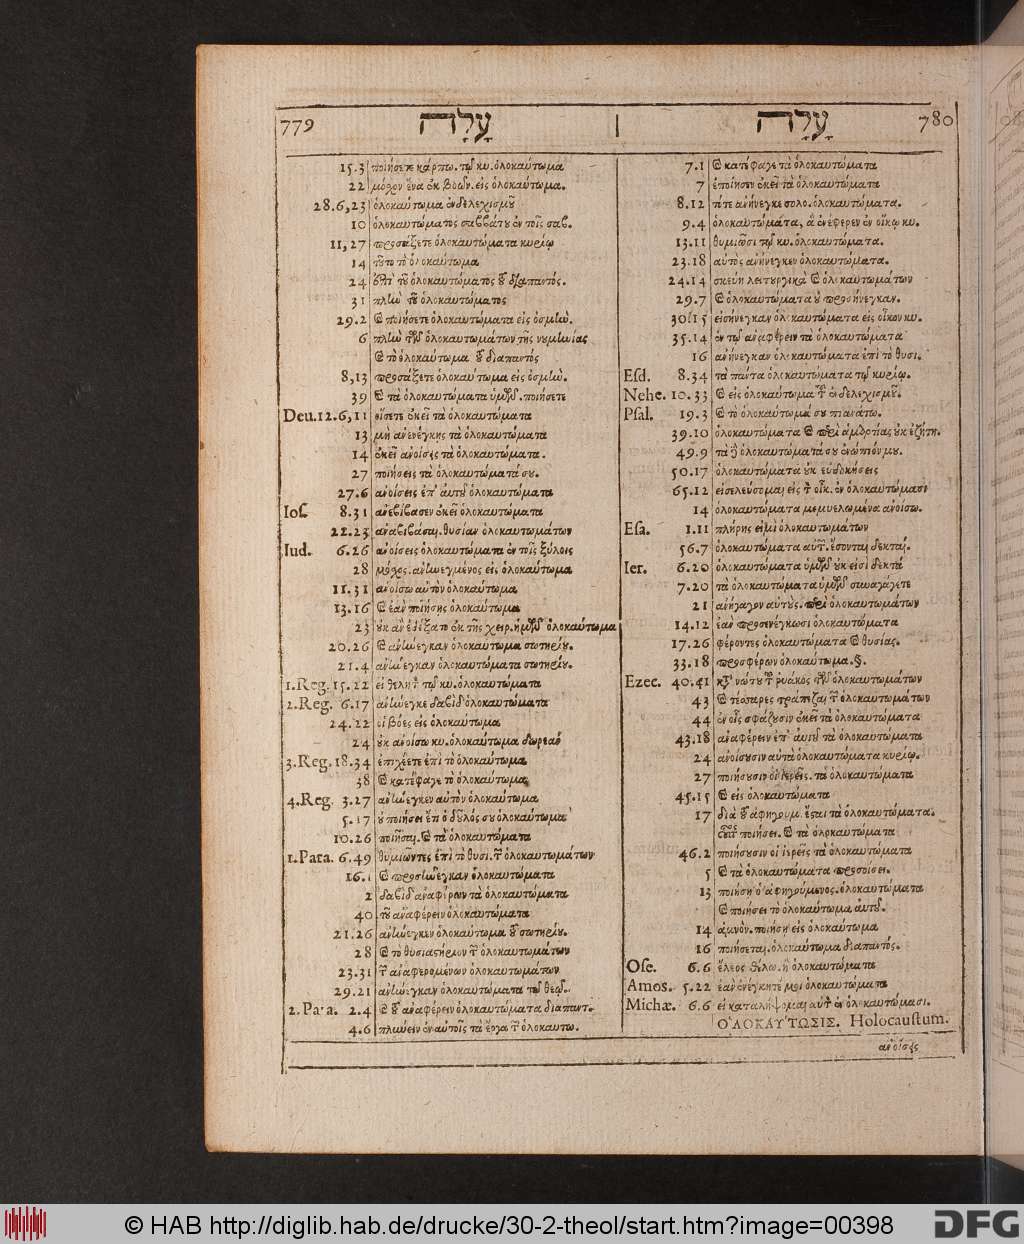 779 עָלָה | עָלָה 780
15.3 ποιήσετε κάρπω. τῷ κυ. ὁλοκαύτωμα
22 μόσχον ἕνα ἐκ βοῶν. εἰς ὁλοκαύτωμα.
28.6,23 ὁλοκαύτωμα ἐνδελεχισμοῦ
10 ὁλοκαυτώματος σαββάτου ἐν τοῖς σαβ.
11,27 προσάξετε ὁλοκαυτώματα κυρίῳ
14 τοῦτο τὸ ὁλοκαύτωμα
24 ἐπὶ τοῦ ὁλοκαυτώματος τοῦ διαπαντός.
31 πλὴν τοῦ ὁλοκαυτώματος
29.2 καὶ ποιήσετε ὁλοκαυτώματα εἰς ὀσμήν.
6 πλὴν τῶν ὁλοκαυτωμάτων τῆς νουμηνίας
καὶ τὸ ὁλοκαύτωμα τοῦ διαπαντός
8,13 προσάξετε ὁλοκαύτωμα εἰς ὀσμήν.
39 καὶ τὰ ὁλοκαυτώματα ὑμῶν. ποιήσετε
Deu. 12.6,11 οἴσετε ἐκεῖ τὰ ὁλοκαυτώματα
13 μὴ ἀνενέγκῃς τὰ ὁλοκαυτώματα
14 ἐκεῖ ἀνοίσεις τὰ ὁλοκαυτώματα.
27 ποιήσεις τὰ ὁλοκαυτώματά σου.
27.6 ἀνοίσεις ἐπ' αὐτοῦ ὁλοκαυτώματα
Ios. 8.31 ἀνεβίβασεν ἐκεῖ ὁλοκαυτώματα
22.23 ἀναβιβάσαι. θυσίαν ὁλοκαυτωμάτων
Iud. 6.26 ἀνοίσεις ὁλοκαυτώματα ἐν τοῖς ξύλοις
28 μόσχος. ἀνηνεγμένος εἰς ὁλοκαύτωμα
11.31 ἀνοίσω αὐτὸν ὁλοκαύτωμα
13.16 καὶ ἐὰν ποιήσῃς ὁλοκαύτωμα
23 οὐκ ἂν ἐδέξατο ἐκ τῆς χειρ. ἡμῶν ὁλοκαύτωμα
20.26 καὶ ἀνήνεγκαν ὁλοκαύτωμα σωτηρίου.
21.4 ἀνήνεγκαν ὁλοκαυτώματα σωτηρίου.
1.Reg. 15.22 εἰ θελητὸν τῷ κυ. ὁλοκαυτώματα
2.Reg. 6.17 ἀνήνεγκε δαβὶδ ὁλοκαυτώματα
24.22 οἱ βόες εἰς ὁλοκαύτωμα
24 οὐκ ἀνοίσω κυ. ὁλοκαύτωμα δωρεάν
3.Reg. 18.34 ἐπιχέετε ἐπὶ τὸ ὁλοκαύτωμα
38 καὶ κατέφαγε τὸ ὁλοκαύτωμα
4.Reg. 3.27 ἀνήνεγκεν αὐτὸν ὁλοκαύτωμα
5.17 οὐ ποιήσει ἔτι ὁ δοῦλός σου ὁλοκαύτωμα
10.26 ποιῆσαι. καὶ τὰ ὁλοκαυτώματα
1.Para. 6.49 θυμιῶντες ἐπὶ τὸ θυσι. τῶν ὁλοκαυτωμάτων
16.1 καὶ προσήνεγκαν ὁλοκαυτώματα
2 δαβὶδ ἀναφέρων τὰ ὁλοκαυτώματα
40 τοῦ ἀναφέρειν ὁλοκαυτώματα
21.26 ἀνήνεγκεν ὁλοκαύτωμα τοῦ σωτηρίου.
28 καὶ τὸ θυσιαστήριον τῶν ὁλοκαυτωμάτων
23.31 τῶν ἀναφερομένων ὁλοκαυτωμάτων
29.21 ἀνήνεγκαν ὁλοκαυτώματα τῷ θεῷ.
2.Para. 2.4 καὶ τοῦ ἀναφέρειν ὁλοκαυτώματα διαπαντ.
4.6 πλύνειν ἐν αὐτοῖς τὰ ἔργα τῶν ὁλοκαυτω.
7.1 καὶ κατέφαγε τὰ ὁλοκαυτώματα
7 ἐποίησεν ἐκεῖ τὰ ὁλοκαυτώματα
8.12 τότε ἀνήνεγκε σολο. ὁλοκαυτώματα.
9.4 ὁλοκαυτώματα, ἃ ἀνέφερεν ἐν οἴκῳ κυ.
13.11 θυμιῶσι τῷ κυ. ὁλοκαυτώματα.
23.18 αὐτὸς ἀνήνεγκεν ὁλοκαυτώματα.
24.14 σκεύη λειτουργικὰ καὶ ὁλοκαυτωμάτων
29.7 καὶ ὁλοκαυτώματα οὐ προσήνεγκαν.
30.15 εἰσήνεγκαν ὁλοκαυτώματα εἰς οἶκον κυ.
35.14 ἐν τῷ ἀναφέρειν τὰ ὁλοκαυτώματα
16 ἀνήνεγκαν ὁλοκαυτώματα ἐπὶ τὸ θυσι.
Esd. 8.34 τὰ πάντα ὁλοκαυτώματα τῷ κυρίῳ.
Nehe. 10.33 καὶ εἰς ὁλοκαύτωμα τοῦ ἐνδελεχισμοῦ.
Psal. 19.3 καὶ τὸ ὁλοκαύτωμά σου πιανάτω.
39.10 ὁλοκαυτώματα καὶ περὶ ἁμαρτίας οὐκ ἐζήτη.
49.9 τὰ δὲ ὁλοκαυτώματά σου ἐνώπιόν μου.
50.17 ὁλοκαυτώματα οὐκ εὐδοκήσεις
65.12 εἰσελεύσομαι εἰς τὸν οἶκ. ἐν ὁλοκαυτώμασι
14 ὁλοκαυτώματα μεμυελωμένα ἀνοίσω.
Esa. 1.11 πλήρης εἰμὶ ὁλοκαυτωμάτων
56.7 ὁλοκαυτώματα αὐτῶν. ἔσονται δεκταί.
Ier. 6.20 ὁλοκαυτώματα ὑμῶν οὐκ εἰσὶ δεκτά
7.20 τὰ ὁλοκαυτώματα ὑμῶν συναγάγετε
21 ἀνήγαγον αὐτούς. περὶ ὁλοκαυτωμάτων
14.12 ἐὰν προσενέγκωσι ὁλοκαυτώματα
17.26 φέροντες ὁλοκαυτώματα καὶ θυσίας.
33.18 προσφέρων ὁλοκαύτωμα. §.
Ezec. 40.41 κατὰ νώτου τοῦ ῥύακος τῶν ὁλοκαυτωμάτων
43 καὶ τέσσαρες τράπεζαι τῶν ὁλοκαυτωμάτων
44 ἐν οἷς σφάζουσιν ἐκεῖ τὰ ὁλοκαυτώματα
43.18 ἀναφέρειν ἐπ' αὐτοῦ τὰ ὁλοκαυτώματα
24 ἀνοίσουσιν αὐτὰ ὁλοκαυτώματα κυρίῳ.
27 ποιήσουσιν οἱ ἱερεῖς. τὰ ὁλοκαυτώματα
45.15 καὶ εἰς ὁλοκαυτώματα
17 διὰ τοῦ ἀφηγουμ. ἔσται τὰ ὁλοκαυτώματα.
αὐτὸς ποιήσει. καὶ τὰ ὁλοκαυτώματα
46.2 ποιήσουσιν οἱ ἱερεῖς τὰ ὁλοκαυτώματα
5 καὶ τὰ ὁλοκαυτώματα προσοίσει.
13 ποιήσῃ ὁ ἀφηγούμενος. ὁλοκαυτώματα
καὶ ποιήσει τὸ ὁλοκαύτωμα αὐτοῦ.
14 ἀμνὸν. ποιήσῃ εἰς ὁλοκαύτωμα
16 ποιήσεται. ὁλοκαύτωμα διαπαντός.
Ose. 6.6 ἔλεος θέλω. ἢ ὁλοκαυτώματα
Amos. 5.22 ἐὰν ἐνέγκητέ μοι ὁλοκαυτώματα
Michæ. 6.6 εἰ καταλήψομαι αὐτὸν ἐν ὁλοκαυτώμασι.
ὉΛΟΚΑΎΤΩΣΙΣ. Holocaustum.
ἀνοίσεις
© HAB http://diglib.hab.de/drucke/30-2-theol/start.htm?image=00398 DFG